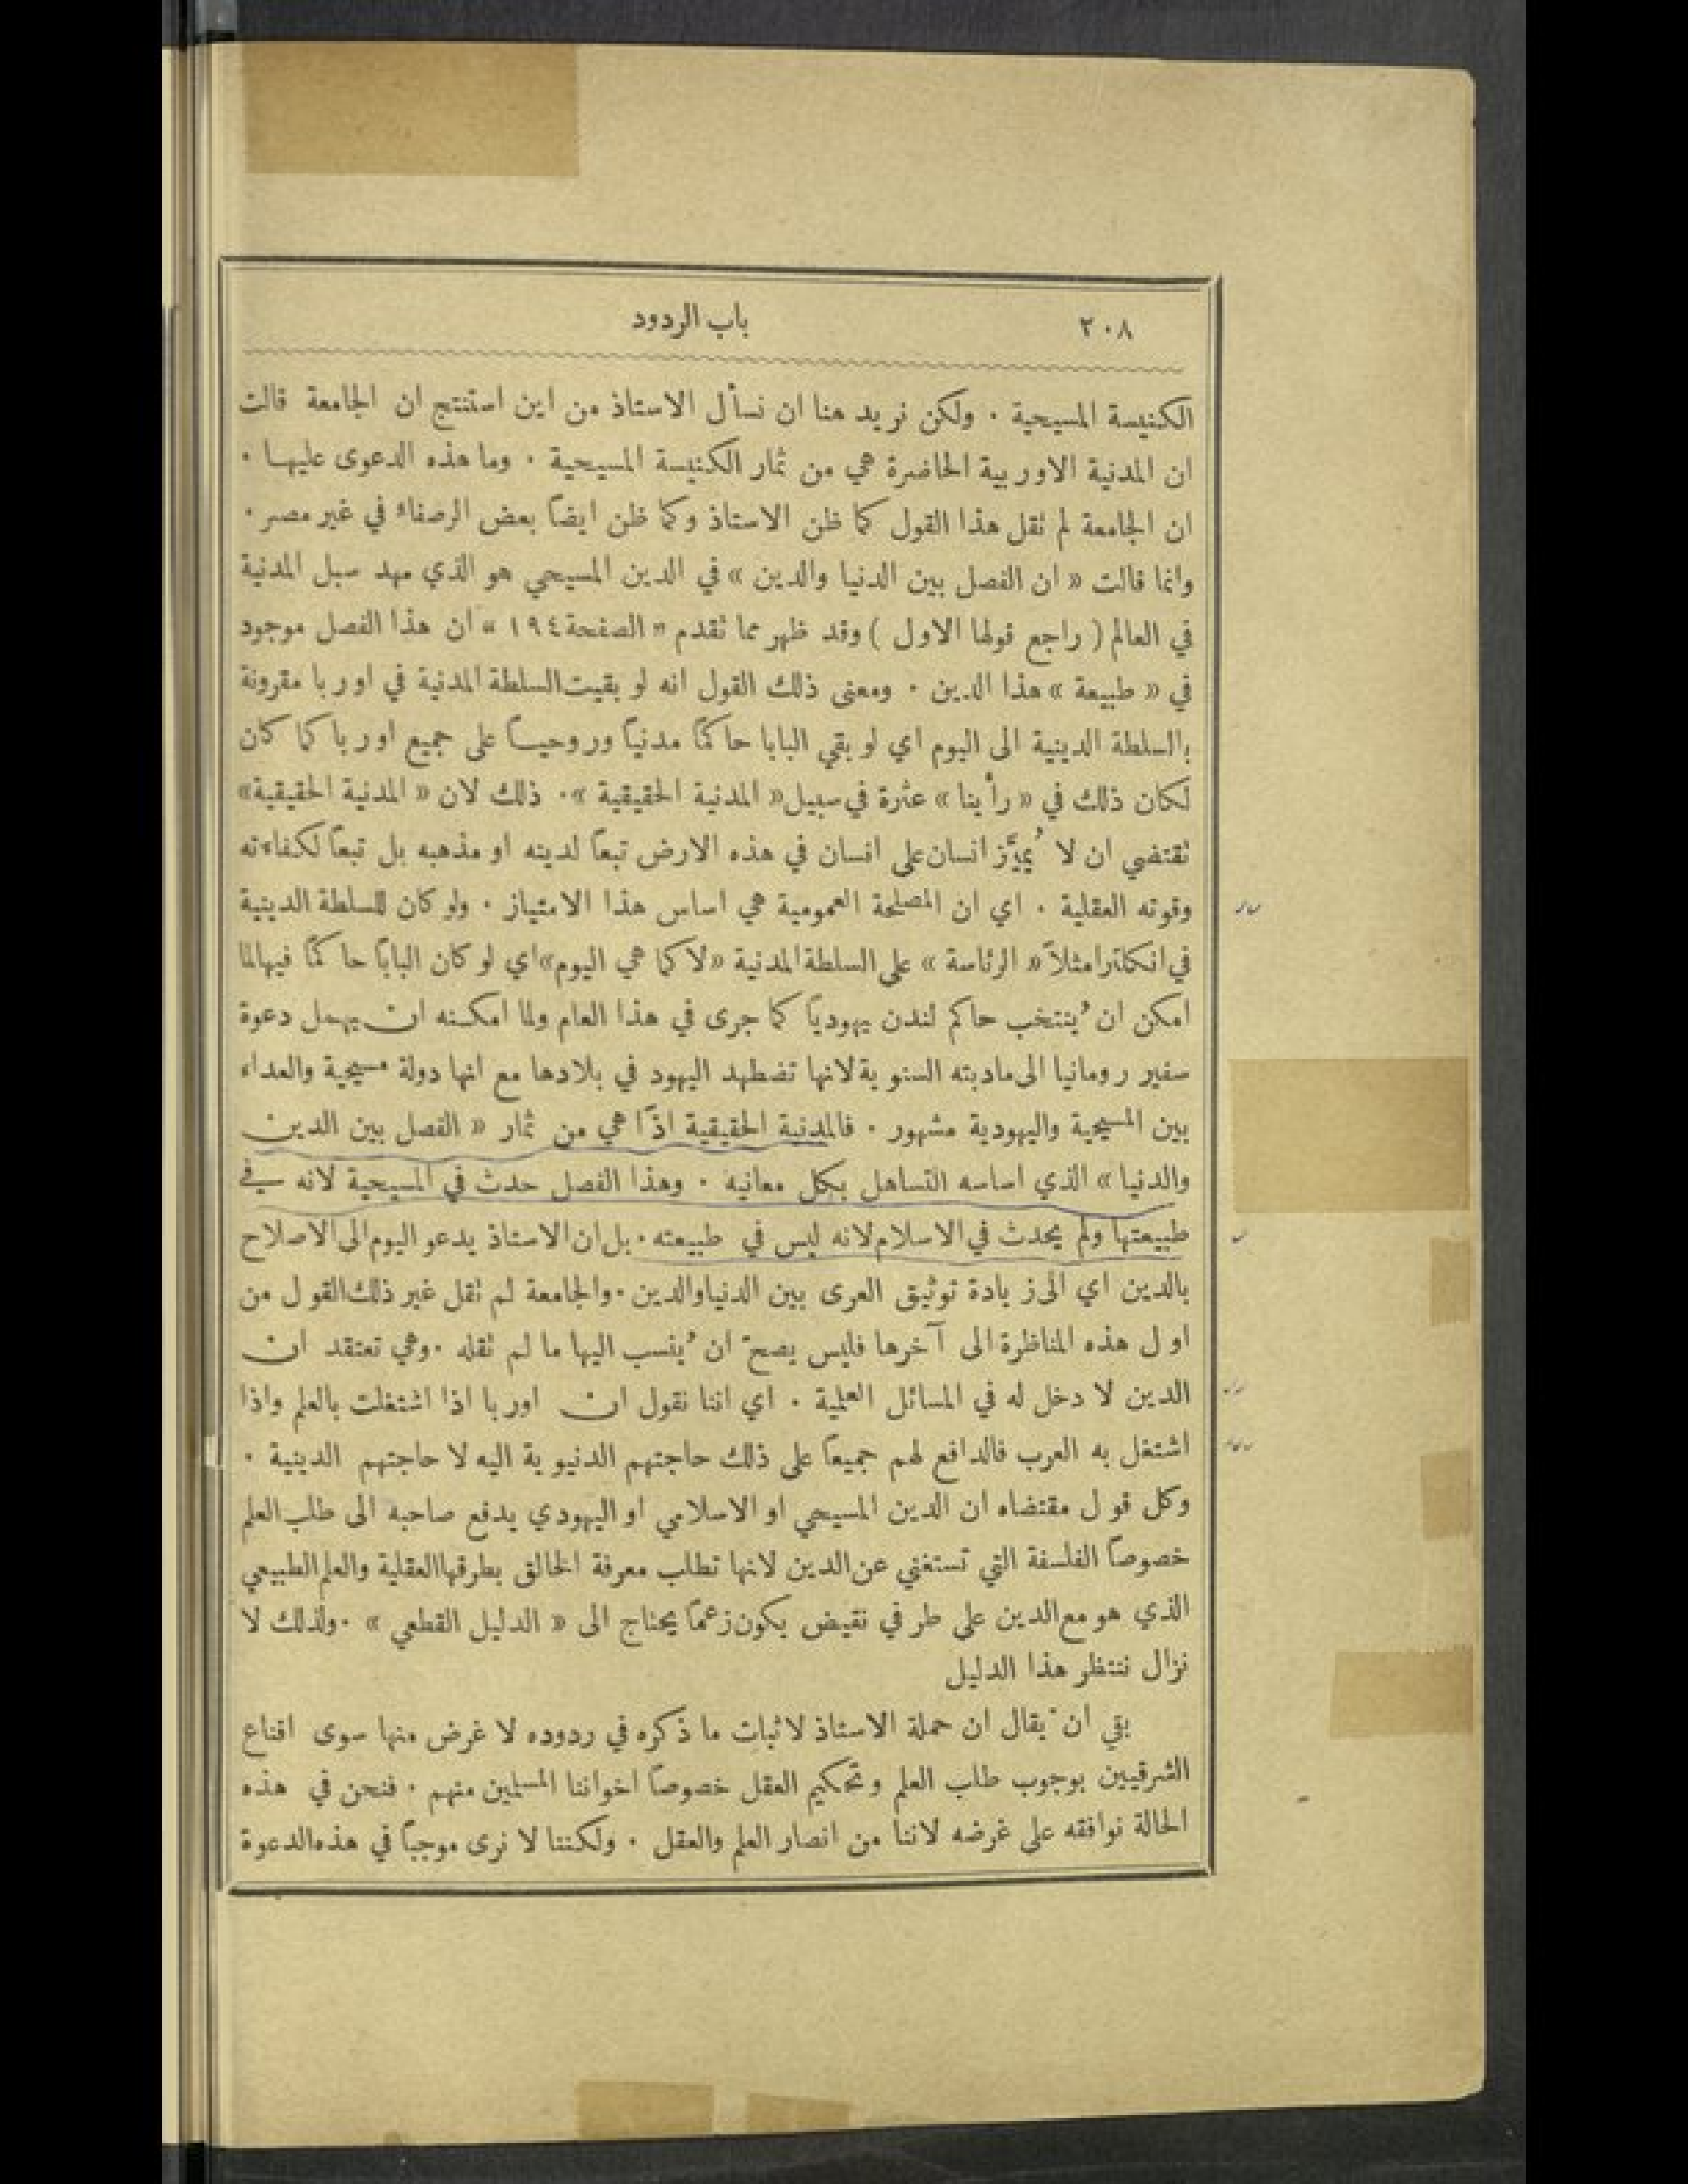 ٢٠٨
باب الردود
الكنيسة المسيحية . ولكن نريد هنا ان نسأل الاستاذ من اين استنتج ان الجامعة قالت
ان المدنية الاوربية الحاضرة هي من ثمار الكنيسة المسيحية . وما هذه الدعوى عليها .
ان الجامعة لم نقل هذا القول كما ظن الاستاذ وكما ظن ايضاً بعض الرصفاء في غير مصر .
وانما قالت « ان الفصل بين الدنيا والدين » في الدين المسيحي هو الذي مهد سبل المدنية
في العالم ( راجع قولها الاول ) وقد ظهر مما نقدم « الصفحة ١٩٤ » ان هذا الفصل موجود
في « طبيعة » هذا الدين . ومعنى ذلك القول انه لو بقيت السلطة المدنية في اوربا مقرونة
بالسلطة الدينية الى اليوم اي لو بقي البابا حاكمًا مدنياً وروحياً على جميع اوربا كما كان
لكان ذلك في « رأينا » عثرة في سبيل « المدنية الحقيقية » . ذلك لان « المدنية الحقيقية »
نقتضي ان لا يُميَّز انسان على انسان في هذه الارض تبعاً لدينه او مذهبه بل تبعاً لكفاءته
وقوته العقلية . اي ان المصلحة العمومية هي اساس هذا الامتياز . ولو كان للسلطة الدينية
في انكلترا مثلاً « الرئاسة » على السلطة المدنية « لا كما هي اليوم » اي لو كان البابا حاكمًا فيها لما
امكن ان يُنتخب حاكم لندن يهودياً كما جرى في هذا العام ولما امكنه ان يهمل دعوة
سفير رومانيا الى مادبته السنوية لانها تضطهد اليهود في بلادها مع انها دولة مسيحية والعداء
بين المسيحية واليهودية مشهور . فالمدنية الحقيقية اذًا هي من ثمار « الفصل بين الدين
والدنيا » الذي اساسه التساهل بكل معانيه . وهذا الفصل حدث في المسيحية لانه في
طبيعتها ولم يحدث في الاسلام لانه ليس في طبيعته . بل ان الاستاذ يدعو اليوم الى الاصلاح
بالدين اي الى زيادة توثيق العرى بين الدنيا والدين . والجامعة لم نقل غير ذلك القول من
اول هذه المناظرة الى آخرها فليس يصحّ ان يُنسب اليها ما لم نقله . وهي تعتقد ان
الدين لا دخل له في المسائل العلمية . اي اننا نقول ان اوربا اذا اشتغلت بالعلم واذا
اشتغل به العرب فالدافع لهم جميعاً على ذلك حاجتهم الدنيوية اليه لا حاجتهم الدينية .
وكل قول مقتضاه ان الدين المسيحي او الاسلامي او اليهودي يدفع صاحبه الى طلب العلم
خصوصاً الفلسفة التي تستغني عن الدين لانها تطلب معرفة الخالق بطرقها العقلية والعلم الطبيعي
الذي هو مع الدين على طرفي نقيض يكون زعمًا يحتاج الى « الدليل القطعي » . ولذلك لا
نزال ننتظر هذا الدليل
بقي ان يُقال ان حملة الاستاذ لاثبات ما ذكره في ردوده لا غرض منها سوى اقناع
الشرقيين بوجوب طلب العلم وتحكيم العقل خصوصاً اخواننا المسلمين منهم . فنحن في هذه
الحالة نوافقه على غرضه لاننا من انصار العلم والعقل . ولكننا لا نرى موجباً في هذه الدعوة